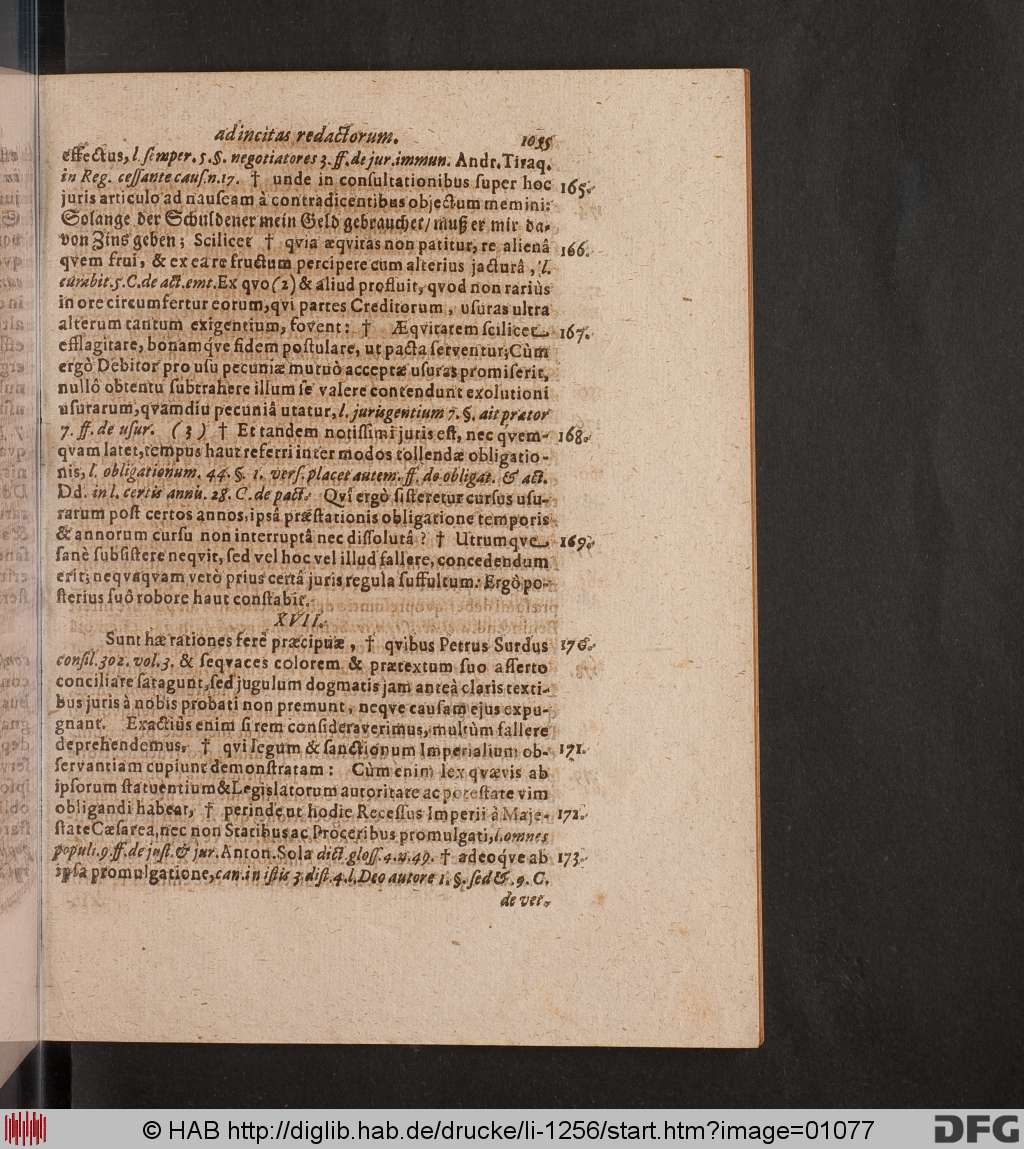 ad incitas redactorum. 1035
effectus, l. semper. 5. §. negotiatores 3. ff. de jur. immun. Andr. Tiraq.
in Reg. cessante caus. n. 17. † unde in consultationibus super hoc 165.
juris articulo ad nauseam à contradicentibus objectum memini:
Solange der Schuldener mein Geld gebrauchet / muß er mir da-
von Zins geben; Scilicet † qvia æqvitas non patitur, re alienâ 166.
qvem frui, & ex ea re fructum percipere cum alterius jacturâ, l.
curabit. 5. C. de act. emt. Ex qvo (2) & aliud profluit, qvod non rariùs
in ore circumfertur eorum, qvi partes Creditorum, usuras ultra
alterum tantum exigentium, fovent: † Æqvitatem scilicet 167.
efflagitare, bonamqve fidem postulare, ut pacta serventur; Cùm
ergò Debitor pro usu pecuniæ mutuò acceptæ usuras promiserit,
nullô obtentu subtrahere illum se valere contendunt exolutioni
usurarum, qvamdiu pecuniâ utatur, l. jurisgentium 7. §. ait prætor
7. ff. de usur. (3) † Et tandem notissimi juris est, nec qvem- 168.
qvam latet, tempus haut referri inter modos tollendæ obligatio-
nis, l. obligationum. 44. §. 1. vers. placet autem. ff. de obligat. & act.
Dd. in l. certis annis. 28. C. de pact. Qvî ergò sisteretur cursus usu-
rarum post certos annos, ipsâ præstationis obligatione temporis
& annorum cursu non interruptâ nec dissolutâ? † Utrumqve 169.
sanè subsistere neqvit, sed vel hoc vel illud fallere, concedendum
erit; neqvaqvam verò prius certâ juris regula suffultum: Ergò po-
sterius suô robore haut constabit.
XVII.
Sunt hæ rationes ferè præcipuæ, † qvibus Petrus Surdus 170.
consil. 302. vol. 3. & seqvaces colorem & prætextum suo asserto
conciliare satagunt, sed jugulum dogmatis jam anteà claris texti-
bus juris à nobis probati non premunt, neqve causam ejus expu-
gnant. Exactiùs enim si rem consideraverimus, multùm fallere
deprehendemus, † qvi legum & sanctionum Imperialium ob- 171.
servantiam cupiunt demonstratam: Cùm enim lex qvævis ab
ipsorum statuentium & Legislatorum autoritate ac potestate vim
obligandi habeat, † perinde ut hodie Recessus Imperii à Maje- 172.
state Cæsarea, nec non Statibus ac Proceribus promulgati, l. omnes
populi. 9. ff. de just. & jur. Anton. Sola dict. gloss. 4. n. 49. † adeoqve ab 173.
ipsâ promulgatione, can. in istis 3. dist. 4. l. Deo autore 1. §. sed &. 9. C.
de vet.
© HAB http://diglib.hab.de/drucke/li-1256/start.htm?image=01077
DFG